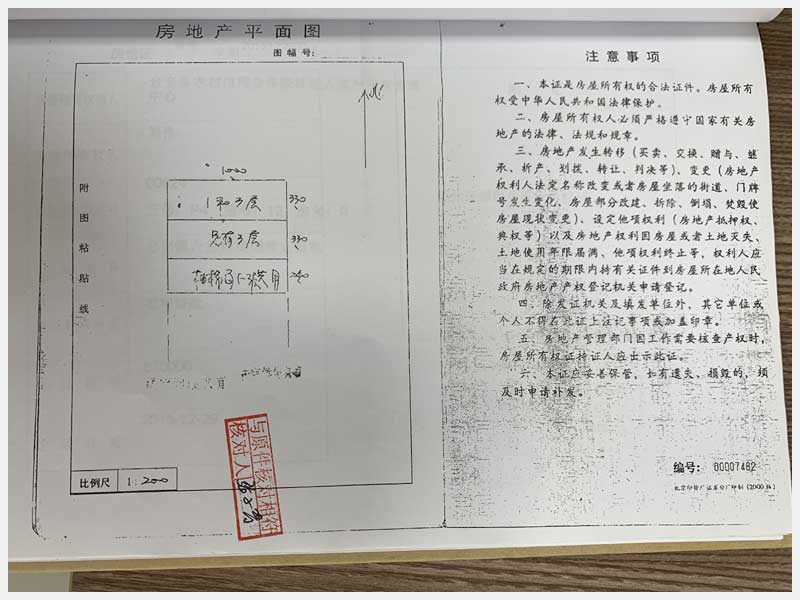 房地产平面图
图幅号:
附图粘贴线
1000
330
330
240
比例尺
1:200
与原件核对相符
核对人
注意事项
一、本证是房屋所有权的合法证件。房屋所有
权受中华人民共和国法律保护。
二、房屋所有权人必须严格遵守国家有关房
地产的法律、法规和规章。
三、房地产发生转移(买卖、交换、赠与、继
承、析产、划拨、转让、判决等)、变更(房地产
权利人法定名称改变或者房屋坐落的街道、门牌
号发生变化、房屋部分改建、拆除、倒塌、焚毁使
房屋现状变更)、设定他项权利(房地产抵押权、
典权等)以及房地产权利因房屋或者土地灭失、
土地使用年限届满、他项权利终止等,权利人应
当在规定的期限内持有关证件到房屋所在地人民
政府房地产产权登记机关申请登记。
四、除发证机关及填发单位外,其它单位或
个人不得在此证上注记事项或加盖印章。
五、房地产管理部门因工作需要核查产权时,
房屋所有权证持证人应出示此证。
六、本证应妥善保管,如有遗失、损毁的,须
及时申请补发。
编号: 00007482
北京印钞厂证券分厂印制(2000版)